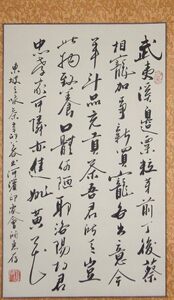 武夷溪邊粟粒芽前丁後蔡
相籠加爭新買寵各出意今
年斗品充官茶吾君所乏豈
此物致養口體何陋耶洛陽相君
忠孝家可憐亦進姚黃花
東坡之咏茶